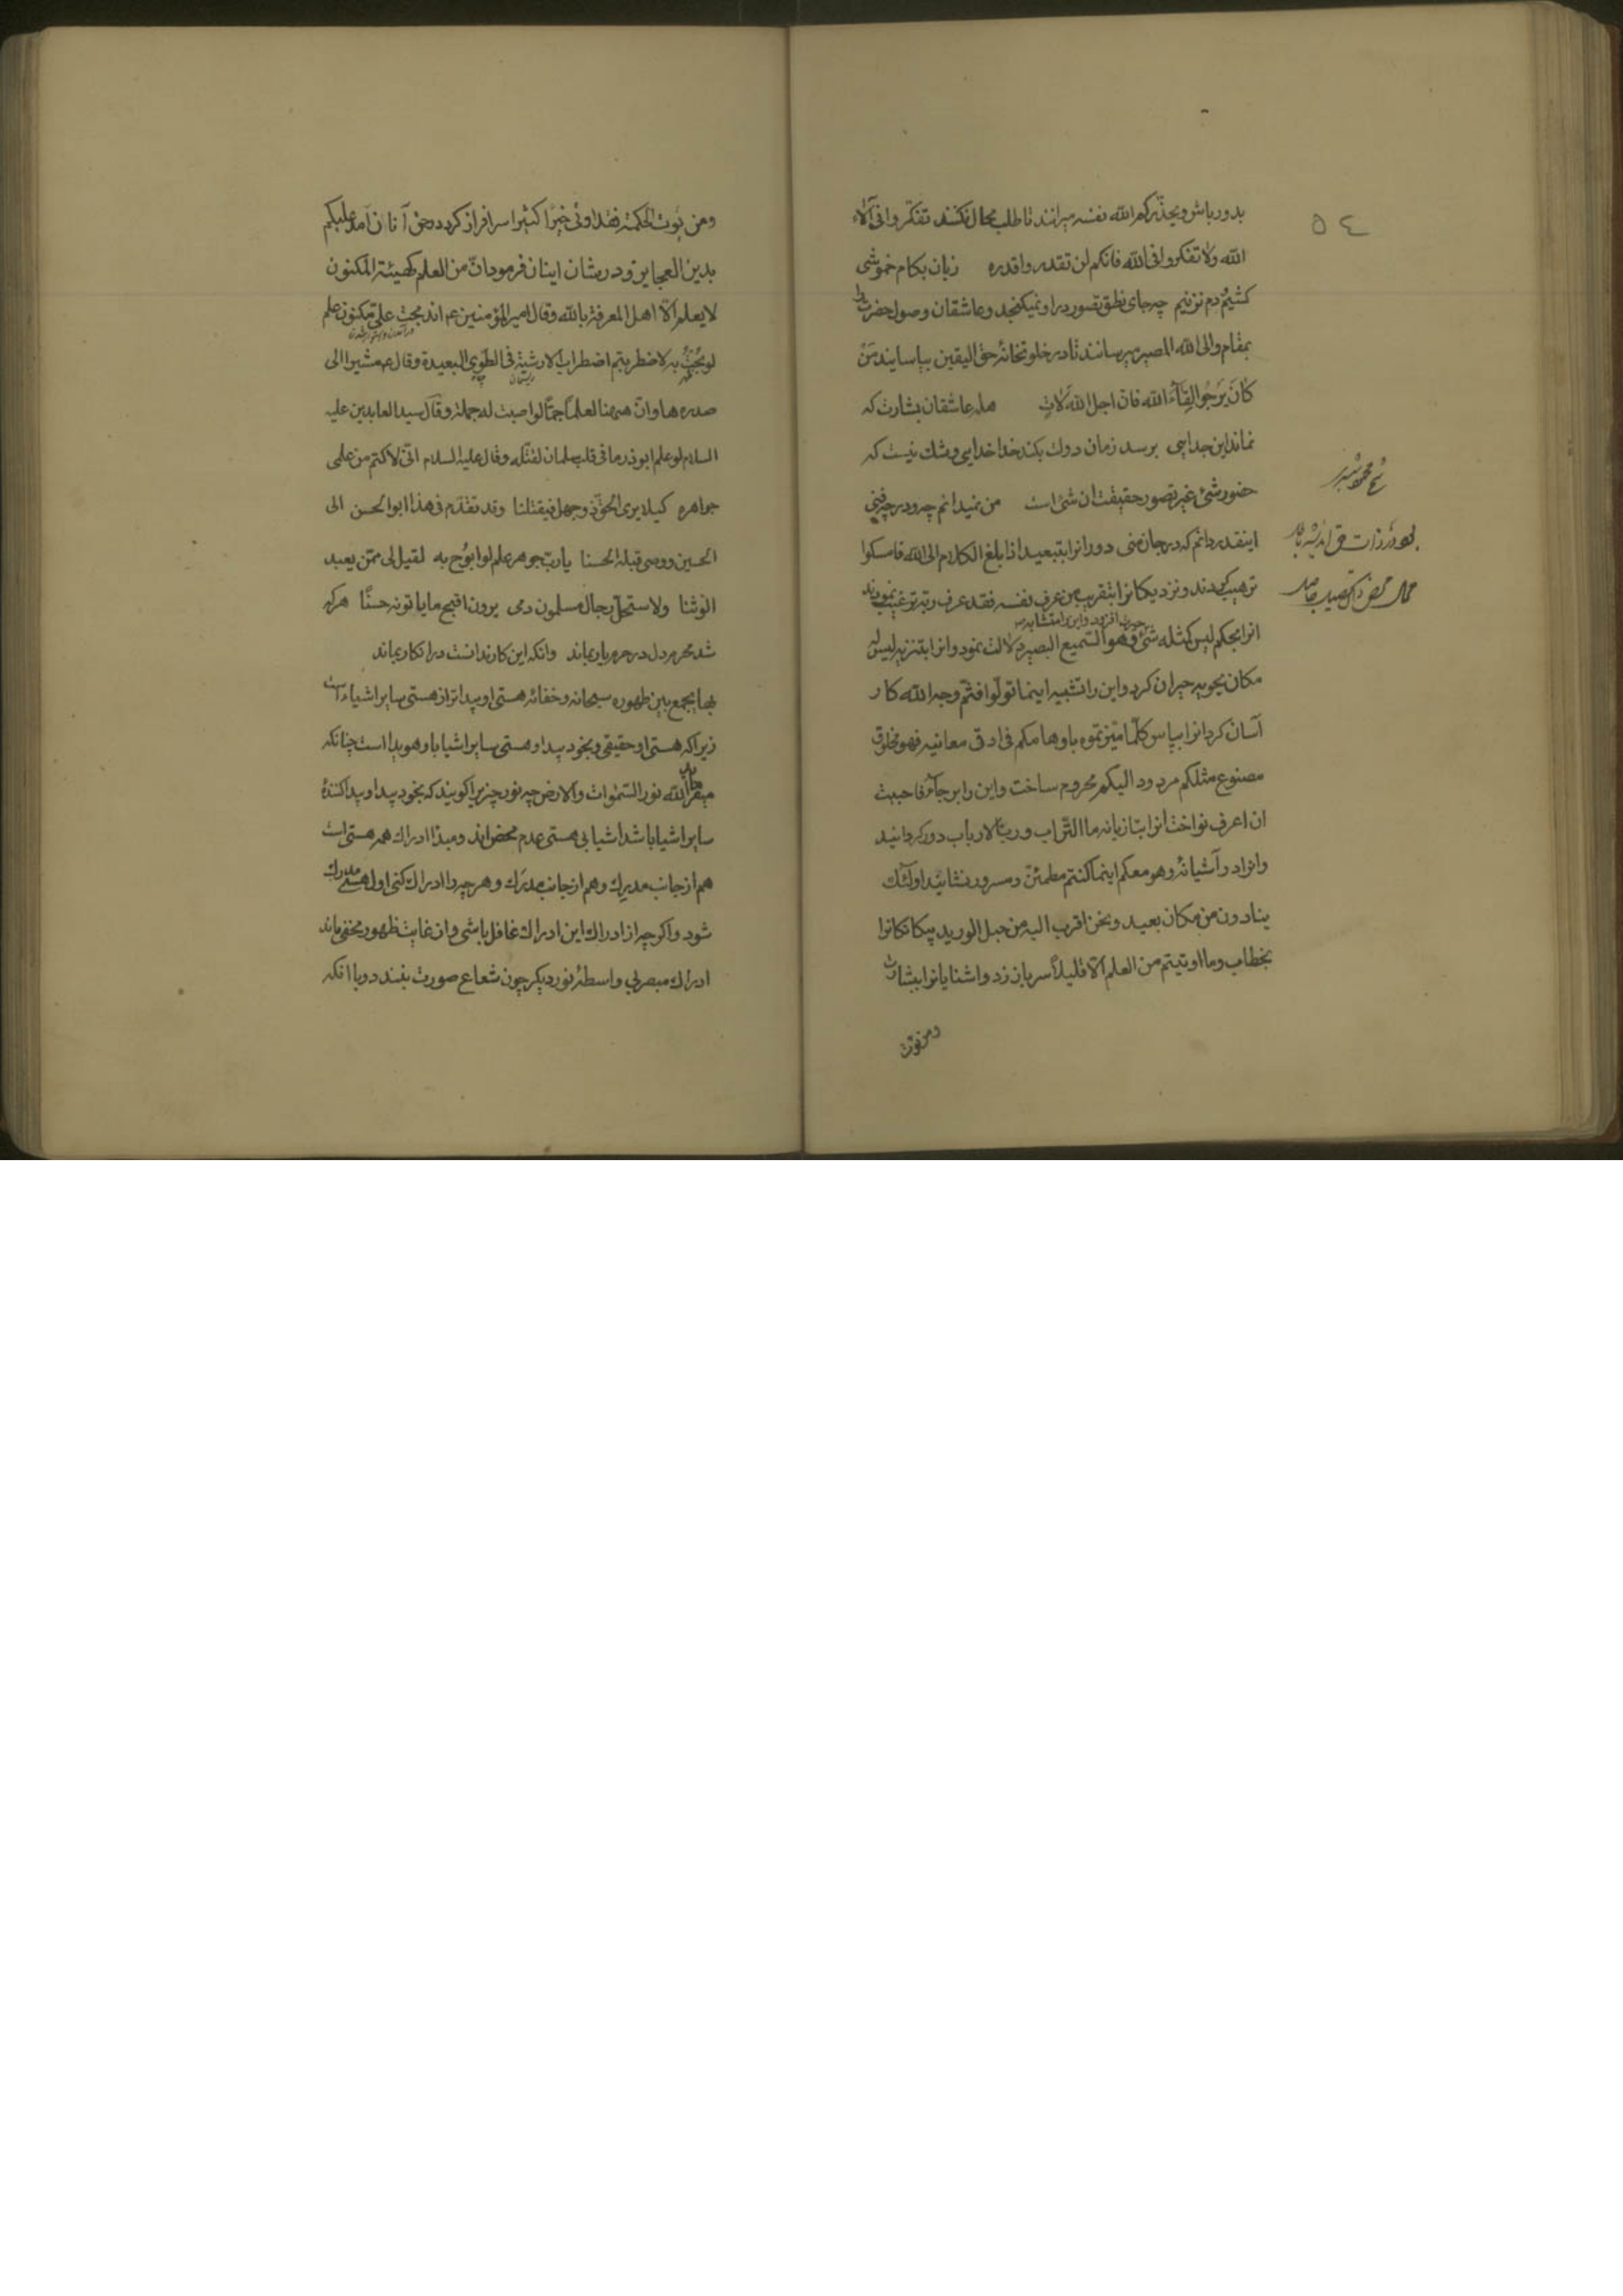 ٥٤
بدور باش ويحذركم الله نفسه ميرانند تا طلب محال نكنند تفكروا فى آلاء
الله ولا تفكروا فى الله فانكم لن تقدروا قدره زبان بكام خموشى
كشيم ودم نزنيم چه جاى نطق تصور در او نميكنجد وعاشقان وصول حضرت را
بمقام والى الله المصير ميرسانند تا در خلوتخانه حق اليقين بياسايند من
كان يرجوا لقاء الله فان اجل الله لآت هله عاشقان بشارت كه
نماند اين جدايى برسد زمان دولت بكند خدا خدايى وشك نيست كه
حضور شئ غير تصور حقيقت ان شئ است من نميدانم چه ودر چه فنى
اينقدر دانم كه در جان منى دورانرا بتبعيد اذا بلغ الكلام الى الله فامسكوا
ترهيب كردند ونزديكانرا بتقريب من عرف نفسه فقد عرف ربه ترغيب نمودند
انرا بمحكم ليس كمثله شئ حيرت افزود واين را متشابه وهو السميع البصير دلالت نمود وانرا بتنزيه ليس له
مكان يحويه حيران كرد واين را تشبيه اينما تولوا فثم وجه الله كار
آسان كرد انرا بپاس كلما ميزتموه باوهامكم فى ادق معانيه فهو مخلوق
مصنوع مثلكم مردود اليكم محروم ساخت واين را برجاء فاحببت
ان اعرف نواخت انرا بتازيانه ما للتراب ورب الارباب دور كردانيد
وانرا در آشيانه وهو معكم اينما كنتم مطمئن ومسرور نشانيد اولئك
ينادون من مكان بعيد ونحن اقرب اليه من حبل الوريد بيكانكانرا
بخطاب وما اوتيتم من العلم الا قليلا سر باز زد واشنايانرا ببشارت
ومن يؤت
شيخ محمود شبسترى
بود در ذات حق انديشه باطل
محال محض دان تحصيل حاصل
ومن يؤت الحكمة فقد اوتى خيرا كثيرا سرافراز كرد در حق آنان آمد عليكم
بدين العجايز ودر شان اينان فرمود ان من العلم كهيئة المكنون
لا يعلمه الا اهل المعرفة بالله وقال امير المؤمنين عم اندمجت على مكنون علم
لو بحت به لاضطربتم اضطراب الارشية فى الطوى البعيدة وقال عم مشيرا الى
ريسمان چاه
صدره ها وان ههنا لعلما جما لو اصبت له حملة وقال سيد العابدين عليه
السلام لو علم ابوذر ما فى قلب سلمان لقتله وقال عليه السلام انى لاكتم من علمى
جواهره كيلا يرى الحق ذو جهل فيفتتلنا وقد تقدم فى هذا ابو الحسن الى
الحسين ووصى قبله الحسنا يا رب جوهر علم لو ابوح به لقيل لى ممن يعبد
الوثنا ولاستحل رجال مسلمون دمى يرون اقبح ما ياتونه حسنا هر كه
شد محرم دل در حرم يار بماند وانكه اين كار ندانست در انكار بماند
بها يجمع بين ظهوره سبحانه وخفائه هستى او پيداتر از هستى ساير اشياء است
زيرا كه هستى او حقيقى وبخود پيدا وهستى ساير اشيا باو هويدا است چنانكه
ميفرمايد الله نور السموات والارض چه نور چيزيرا كويند كه بخود پيدا وپيداكننده
ساير اشيا باشد اشيا بى هستى عدم محض اند ومبدا ادراك همه هستى است
هم از جانب مدرِك وهم از جانب مدرَك وهر چه را ادراك كنى اول هستى مدرك
شود واكر چه از ادراك اين ادراك غافل باشى واز غايت ظهور مخفى ماند
ادراك مبصر بى واسطه نور ديكر چون شعاع صورت نبندد وبا انكه